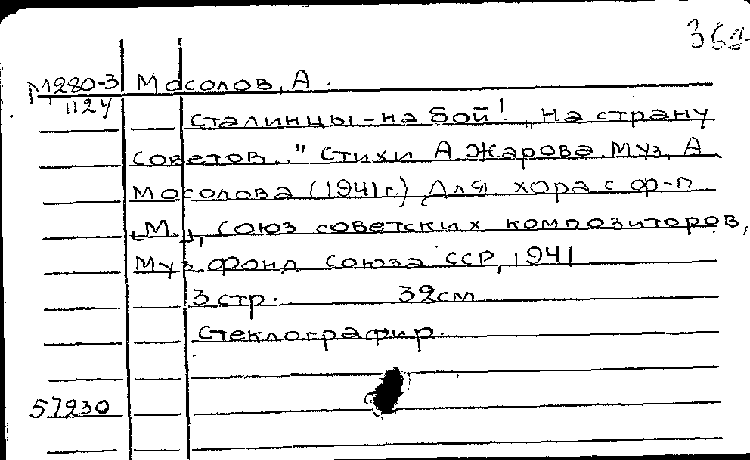 М280-3 Мосолов, А.
1124
Сталинцы - на бой! „На страну
советов.." Стихи А. Жарова. Муз. А.
Мосолова (1941 г.) Для хора с ф-п
[М.], Союз советских композиторов,
Муз. фонд Союза ССР, 1941
3 стр. 32 см
Стеклографир.
57230